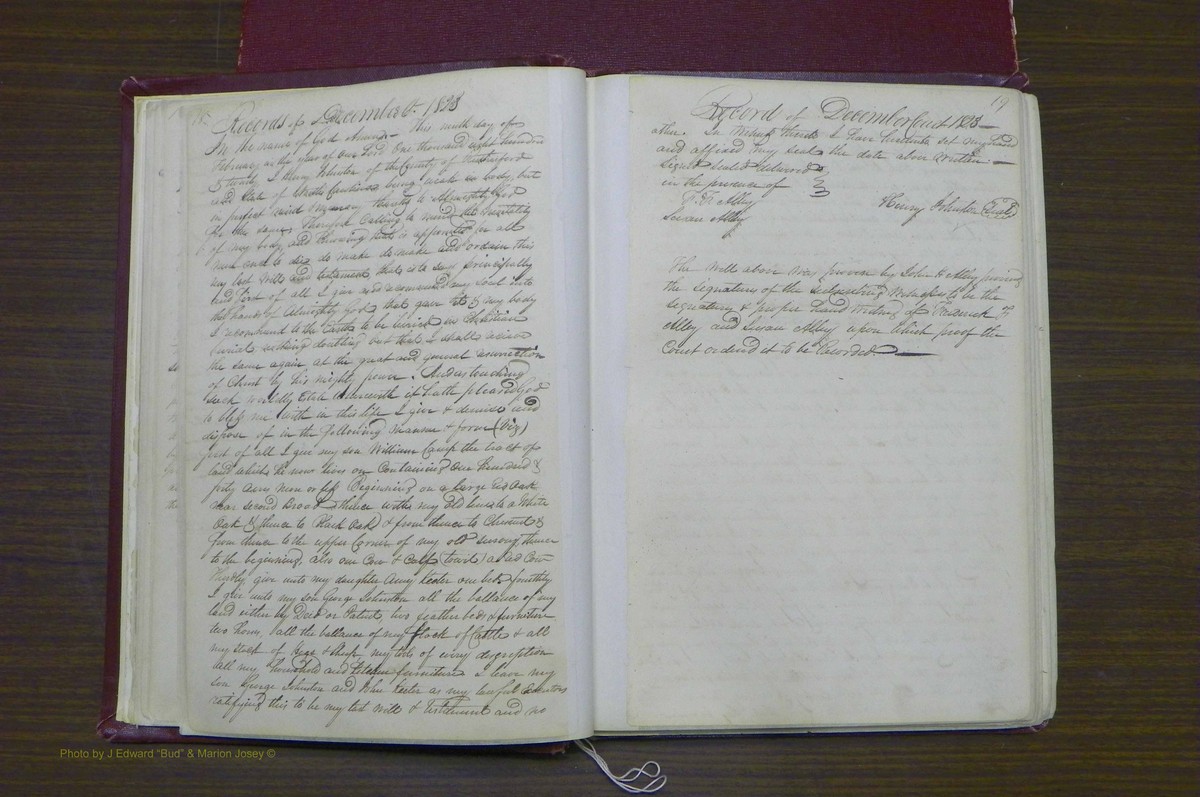 Records of December Ct. 1828
In the name of God Amen - This ninth day of
February in the year of our Lord One thousand eight hundred
& twenty I Henry Johnston of the County of Rutherford
and State of North Carolina being weak in body, but
in perfect mind & memory thanks to Almighty God
for the same, Therefore Calling to mind the mortality
of my body and knowing that is appointed for all
men once to die do make do make and ordain this
my last Will and testament, that is to say principally
and first of all I give and recommend my Soul into
the hands of Almighty God that gave it & my body
I recommend to the Earth to be buried in Christian
burial, nothing doubting but that I shall receive
the same again at the great and general resurrection
of Christ by his mighty power. And as touching
such worldly Estate wherewith it hath pleased God
to bless me with in this life I give & demise and
dispose of in the following manner & form (Viz)
first of all I give my son William Camp the tract of
land which he now lives on Containing One hundred &
forty acres more or less Beginning on a large Red Oak
near second Broad thence with my old line to a White
Oak & thence to Black Oak & from thence to Chesnut &
from thence to the upper Corner of my old survey thence
to the beginning, also one Cow & Calf (towit) a Red Cow
Thirdly give unto my daughter Amy Keeter one bed fourthly
I give unto my son George Johnston all the ballance of my
land either by Deed or Patents, two feather beds & furniture
two horses, all the ballance of my flock of Cattle & all
my stock of Hogs & sheep, my tools of every description
all my household and kitchen furniture I leave my
son George Johnston and John Keeter as my lawful Executors
ratifying this to be my last Will & testament and no
19
Record of December Court 1828 —
other. In Witness thereof I have hereunto set my hand
and affixed my seal the date above written. —
Signed Sealed delivered
in the presence of
F. F. Alley
Susan Alley
Henry Johnston (Seal)
The Will above was proven by John H Alley proving
the signature of the subscribing Witnesses to be the
signature & proper hand writing of Frederick F
Alley and Susan Alley upon which proof the
Court ordered it to be Recorded. —
Photo by J Edward "Bud" & Marion Josey ©